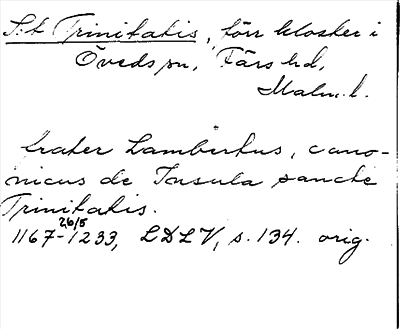 S:t Trinitatis, förr kloster i
Öveds sn, Färs hd,
Malm. l.
frater Lambertus, cano-
nicus de Insula sancte
Trinitatis.
1167-26/5 1233, LDLV, s. 134. orig.